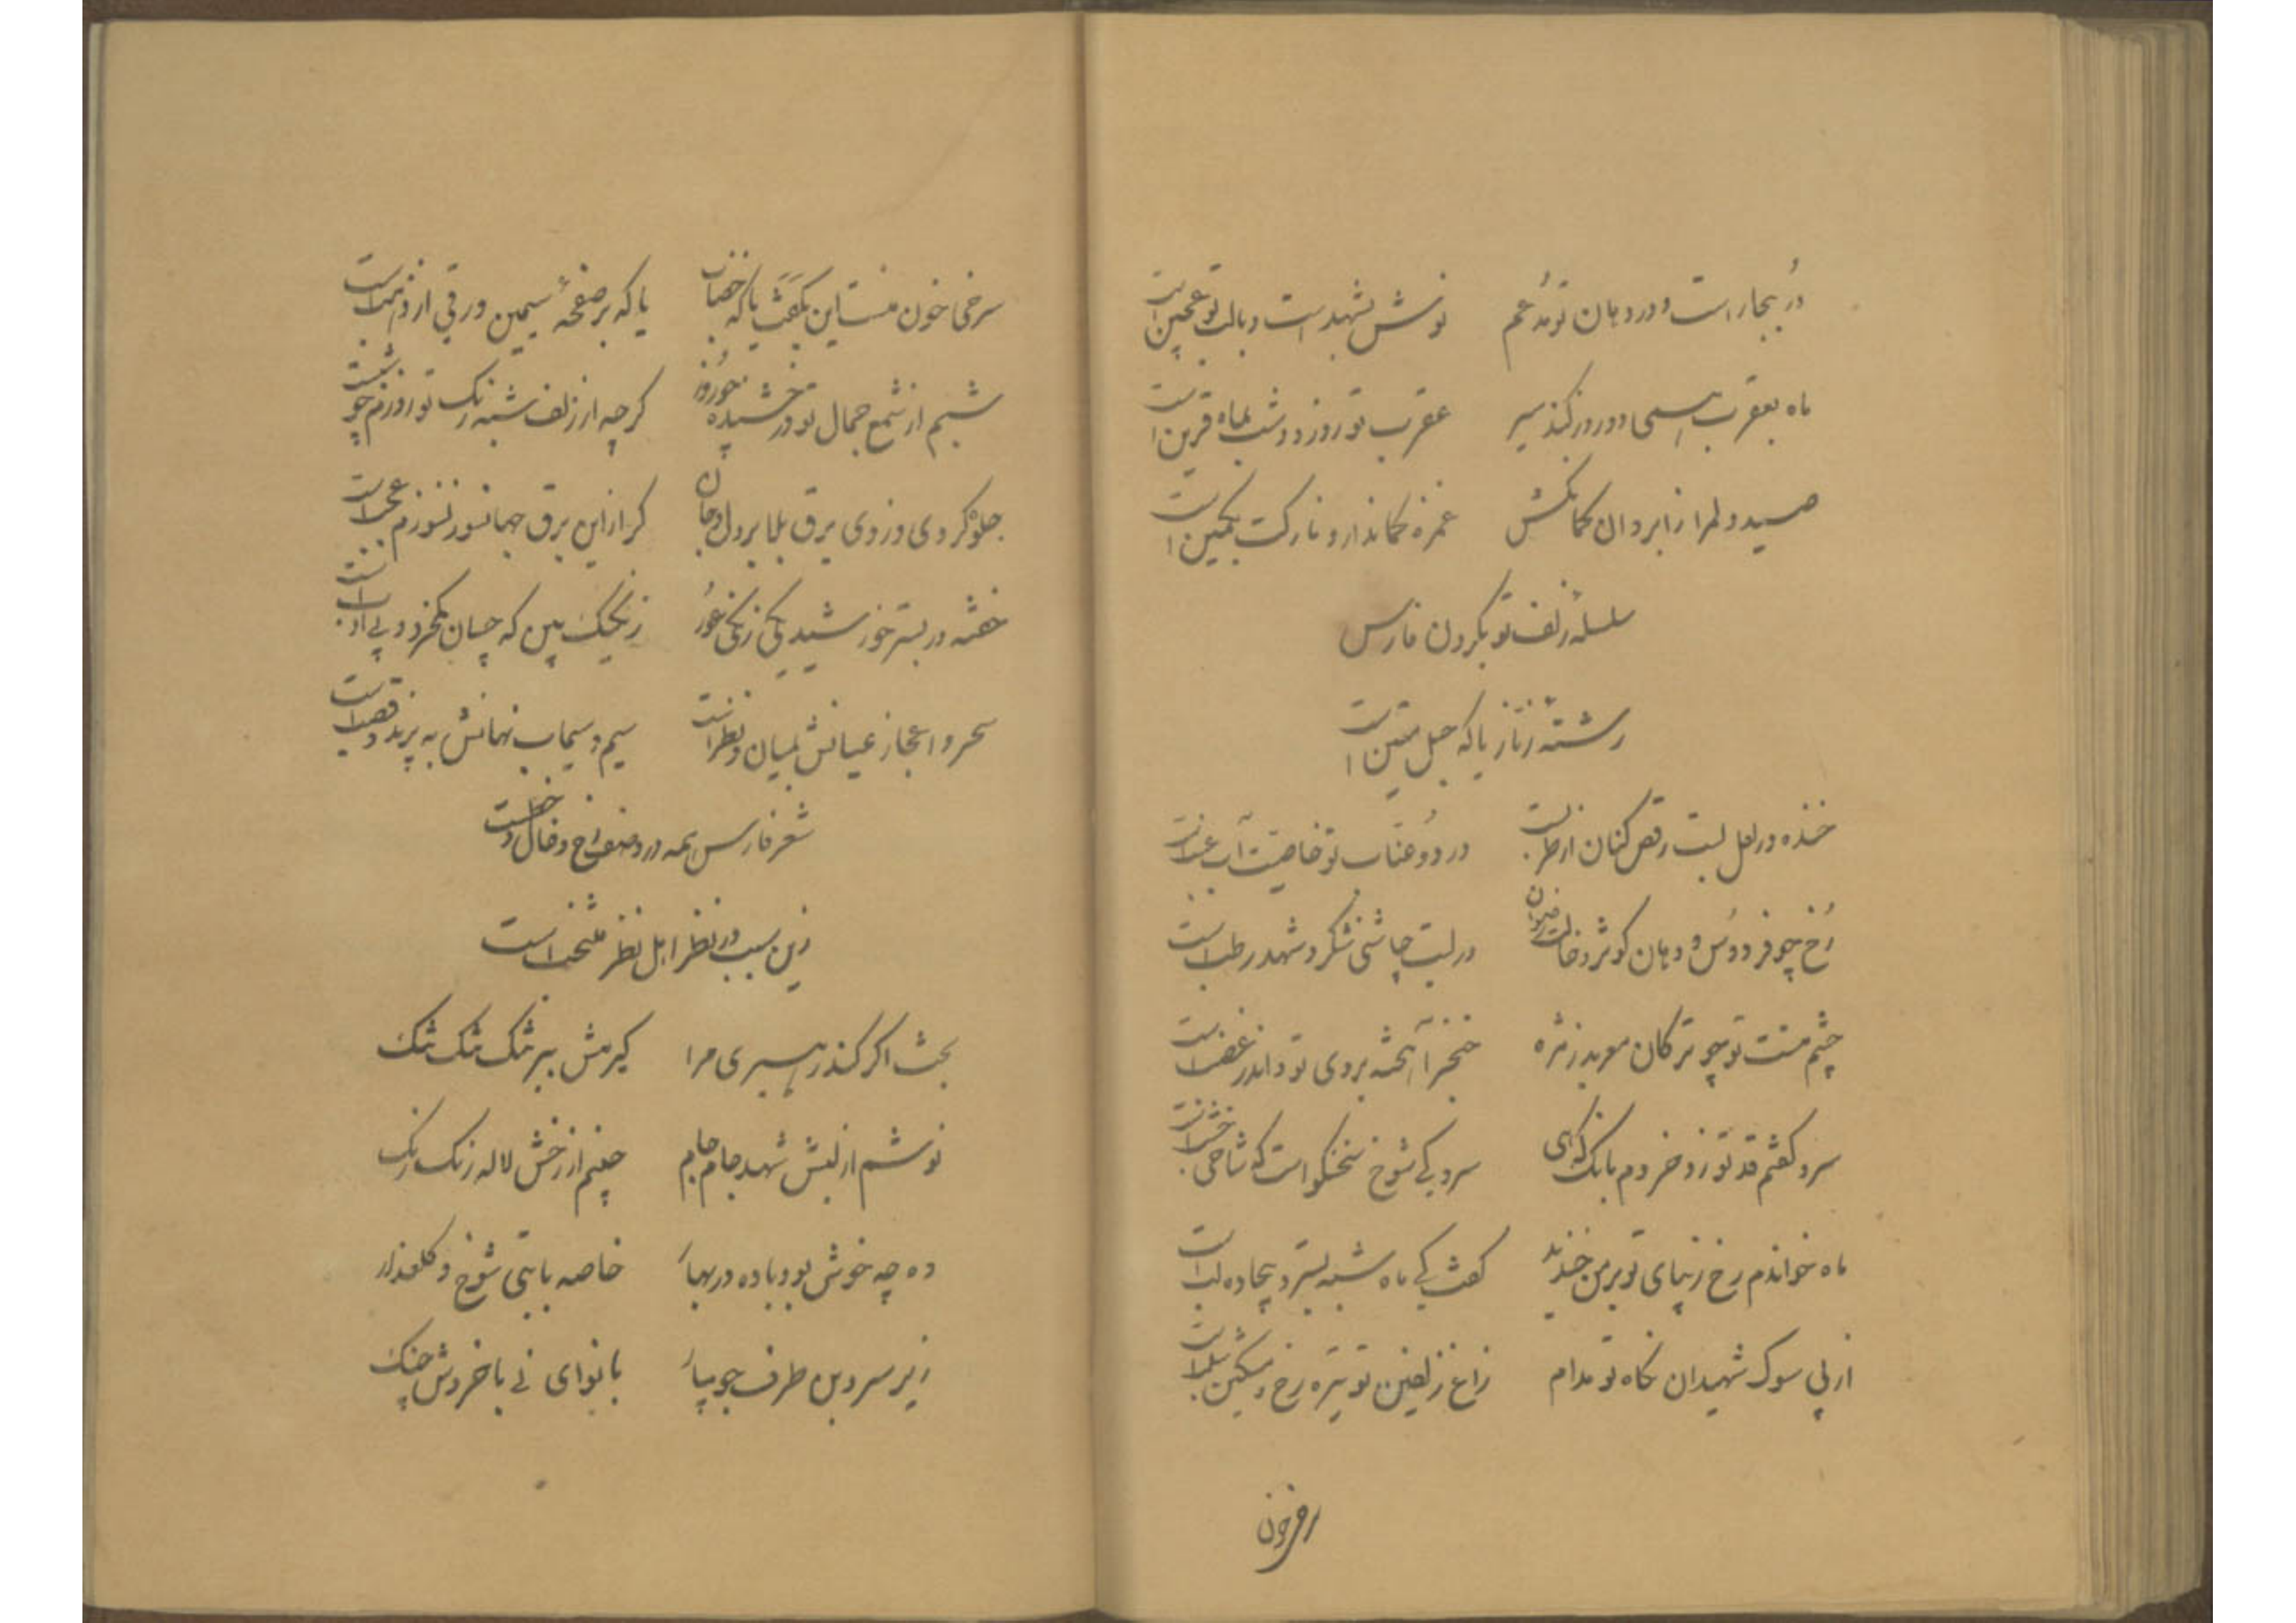 دُر ببحار است و در دهان تو مدغم    نوش بشهد است و بالب تو عجین است
ماه بعقرب بسی دو روز کند سیر    عقرب تو روز و شب بماه قرین است
صید دلمرا ز ابروان کمانکش    غمزه کماندار و نازکت بکمین است
سلسلهٔ زلف تو بگردن فارس
رشتهٔ زنار یا که حبل متین است
خنده در لعل لبت رقص کنان از طرب است    در دو عناب تو خاصیت آب عنب است
رُخ چو فردوس و دهان کوثر و خالت رضوان    در لبت چاشنی شکر و شهد رطب است
چشم مست تو چو ترکان معربد ز مژه    خنجر آهخته بروی تو و اندر غضب است
سرو گفتم قد تو زد خردم بانک که هی    سرو کی شوخ سخنگو است که شاخی خشب است
ماه خواندم رخ زیبای تو بر من خندید    گفت کی ماه شبه بستر و بیجاده لب است
از پی سوک شهیدان نگاه تو مدام    زاغ زلفین تو تیره رخ و مشکین سلب است
سرخی خون منست این بکفت یا که خضاب    یا که بر صفحهٔ سیمین ورقی از ذهب است
شبم از شمع جمال تو درخشیده چو روز    گرچه از زلف شبه رنک تو روزم چو شب است
جلوه کردی و زدی برق بلا بر دل و جان    گر از این برق جهانسوز نسوزم عجب است
خفته در بستر خورشید یکی زنکی عور    زنگیک بین که چسان بیخرد و بی ادب است
سحر و اعجاز عیانش بمیان و نظر است    سیم و سیماب نهانش به پرند و قصب است
شعر فارس همه در وصف رخ و خال و خط است
زین سبب در نظر اهل نظر منتخب است
بخت اگر کند رهبری مرا    گیرمش ببر تنک تنک تنک
نوشم از لبش شهد جام جام    چینم از رخش لاله رنک رنک
وه چه خوش بود باده در بهار    خاصه با بتی شوخ و گلعذار
زیر سرو بن طرف جویبار    با نوای نی با خروش چنک